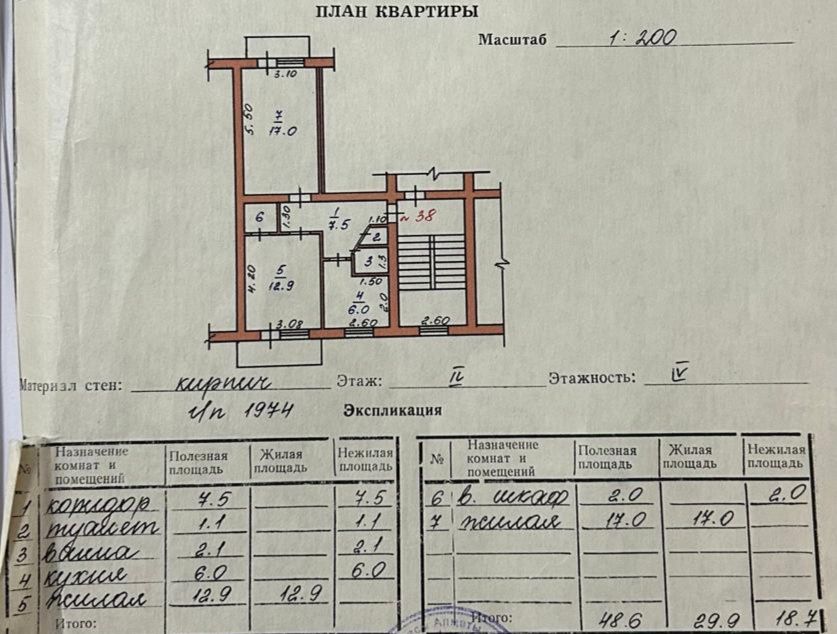 ПЛАН КВАРТИРЫ
Масштаб 1:200
3.10
5.50
7
17.0
6
1.30
1
7.5
1.10
№ 38
2
3
1.3
1.50
4.20
5
12.9
4
6.0
2.0
3.08
2.60
2.60
Материал стен: кирпич Этаж: II Этажность: IV
г/п 1974 Экспликация
№ Назначение комнат и помещений Полезная площадь Жилая площадь Нежилая площадь
1 коридор 7.5 7.5
2 туалет 1.1 1.1
3 ванна 2.1 2.1
4 кухня 6.0 6.0
5 жилая 12.9 12.9
Итого:
№ Назначение комнат и помещений Полезная площадь Жилая площадь Нежилая площадь
6 в. шкаф 2.0 2.0
7 жилая 17.0 17.0
Итого: 48.6 29.9 18.7